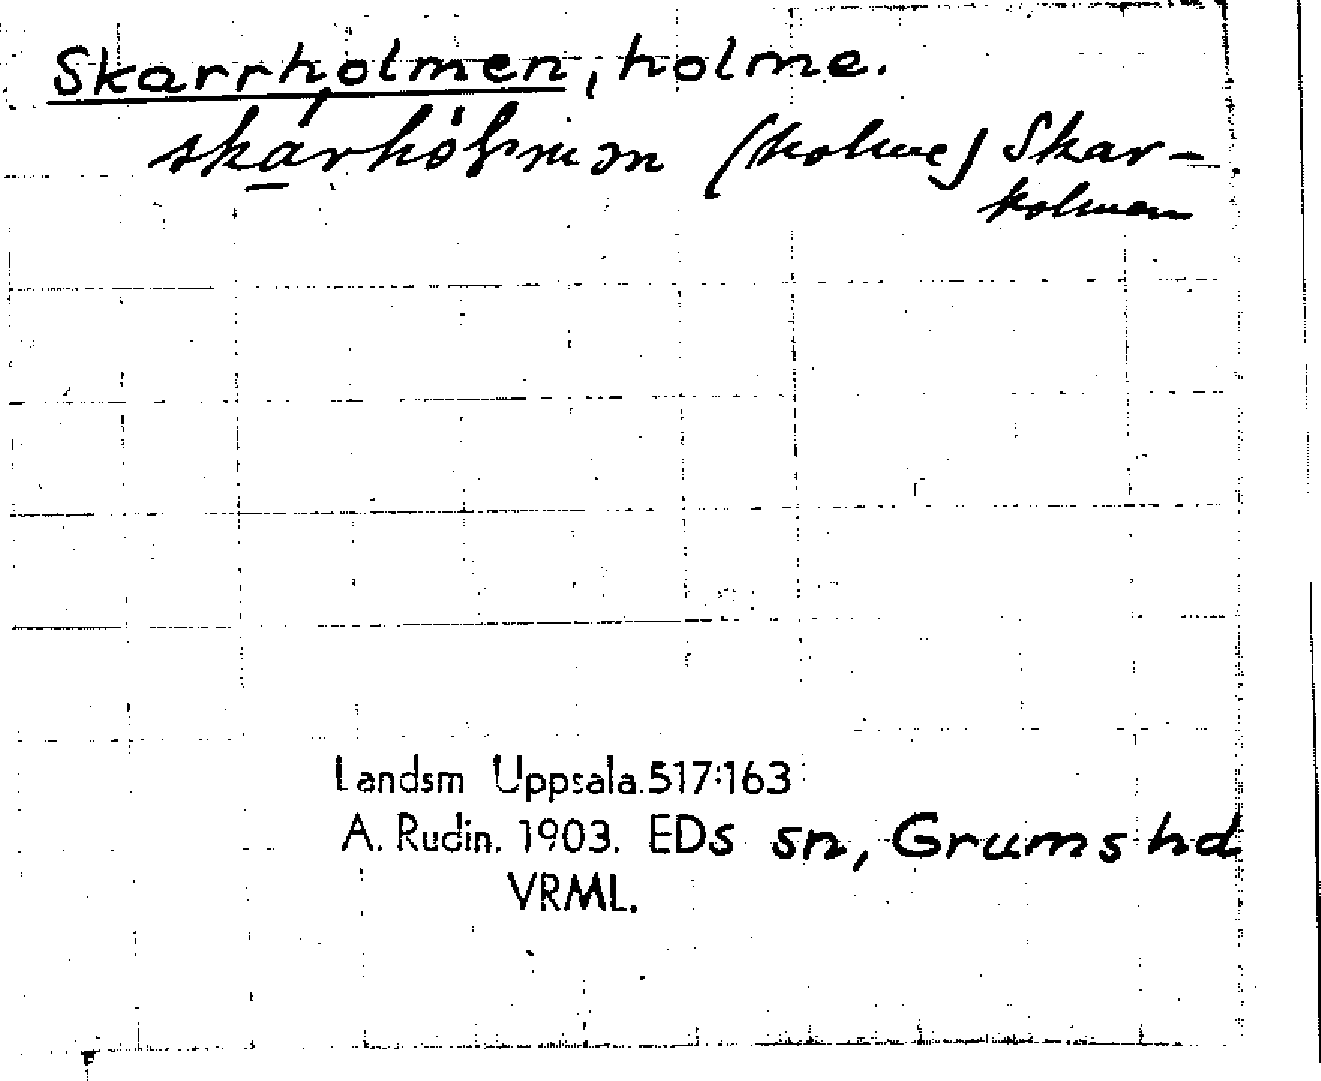 Skarrholmen, holme.
skárhólmɜn (holme) Skar-
holmen
Landsm Uppsala. 517:163
A. Rudin. 1903. EDs sn, Grums hd
VRML.